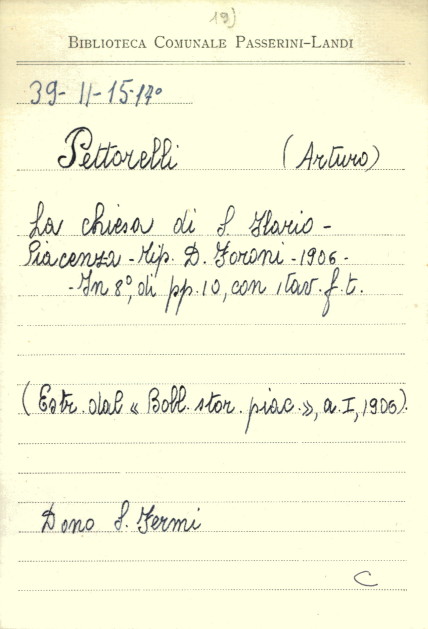 19)
BIBLIOTECA COMUNALE PASSERINI-LANDI
39- II-15-17°
Pettorelli (Arturo)
La chiesa di S. Ilario -
Piacenza - Tip. D. Foroni - 1906 -
- In 8°, di pp. 10, con 1 tav. f. t.
(Estr. dal « Boll. stor. piac. », a. I, 1906).
Dono S. Fermi
C